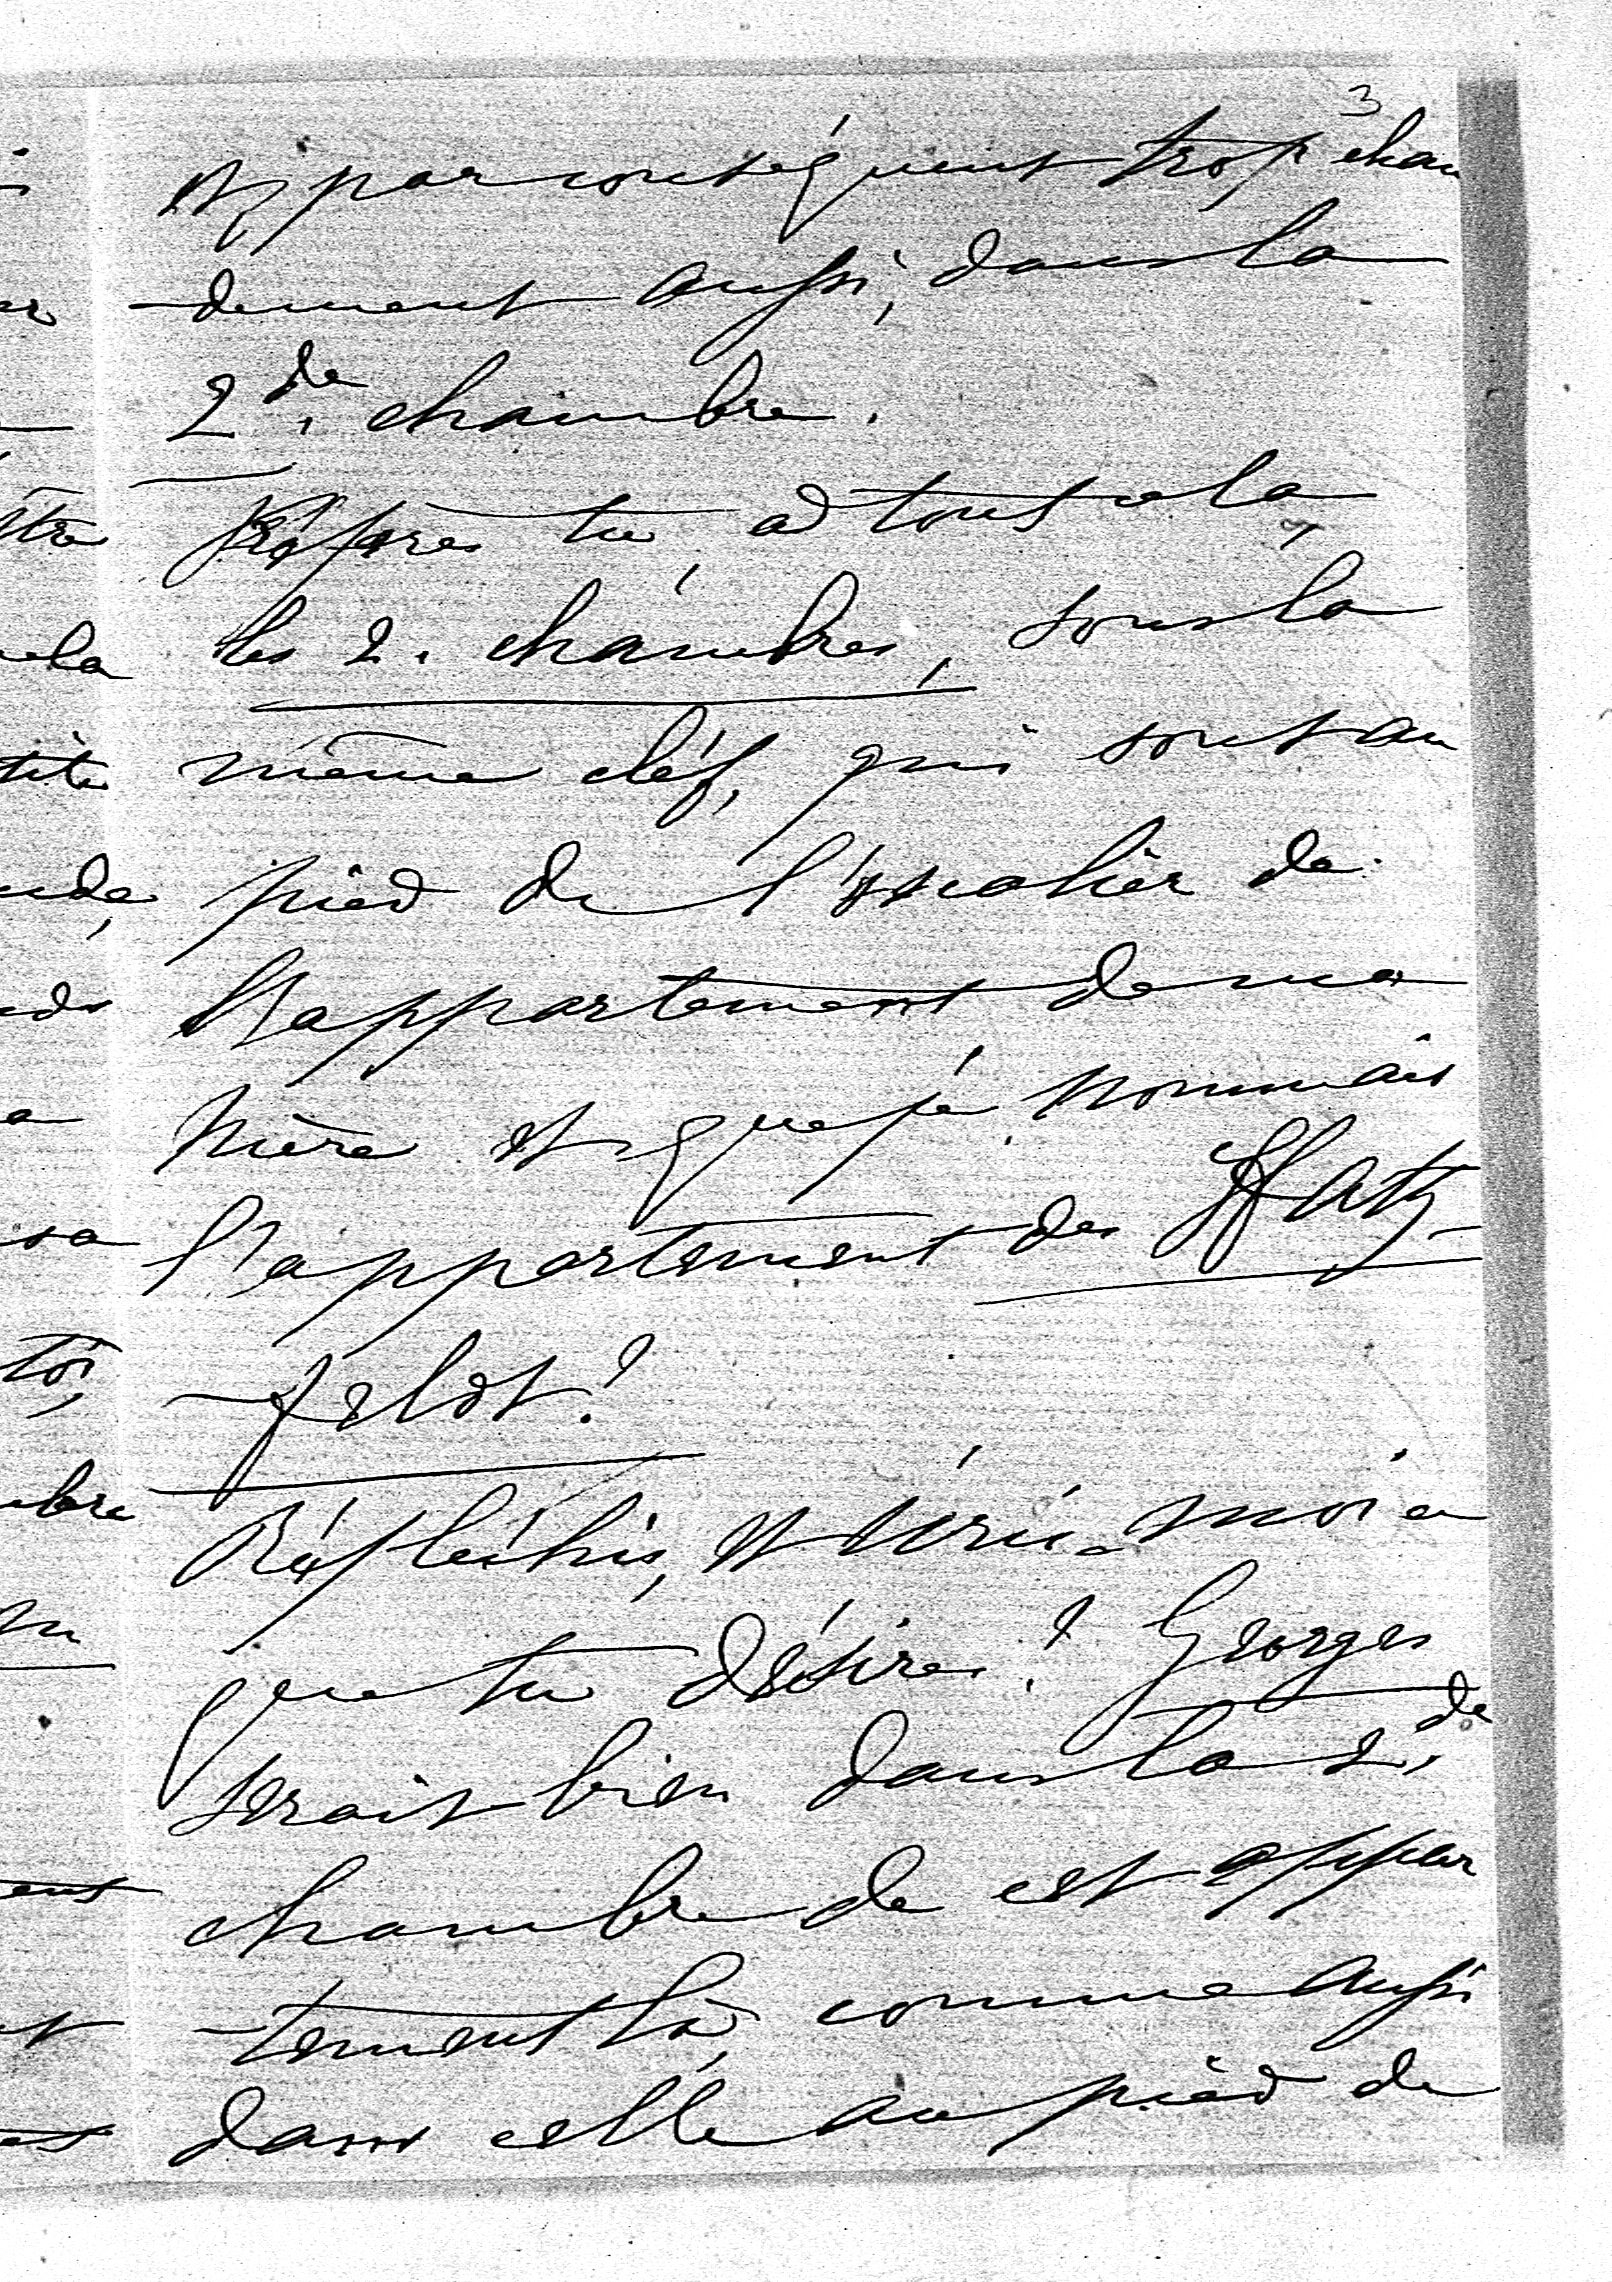 3
et, par conséquent trop chau
-dement aussi, dans la
2de. chambre.
Préfères tu à tout cela,
les 2. chambres, sous la
même cléf, qui sont au
pied de l'escalier de
l'appartement de ma
mère et que je nommais
l'appartement des Hatz-
-feldt?
Réfléchis, et écris-moi ce
que tu désires? Georges
serait bien dans la 2de.
chambre de cet appar
-tement là, comme aussi
dans celle au pied de